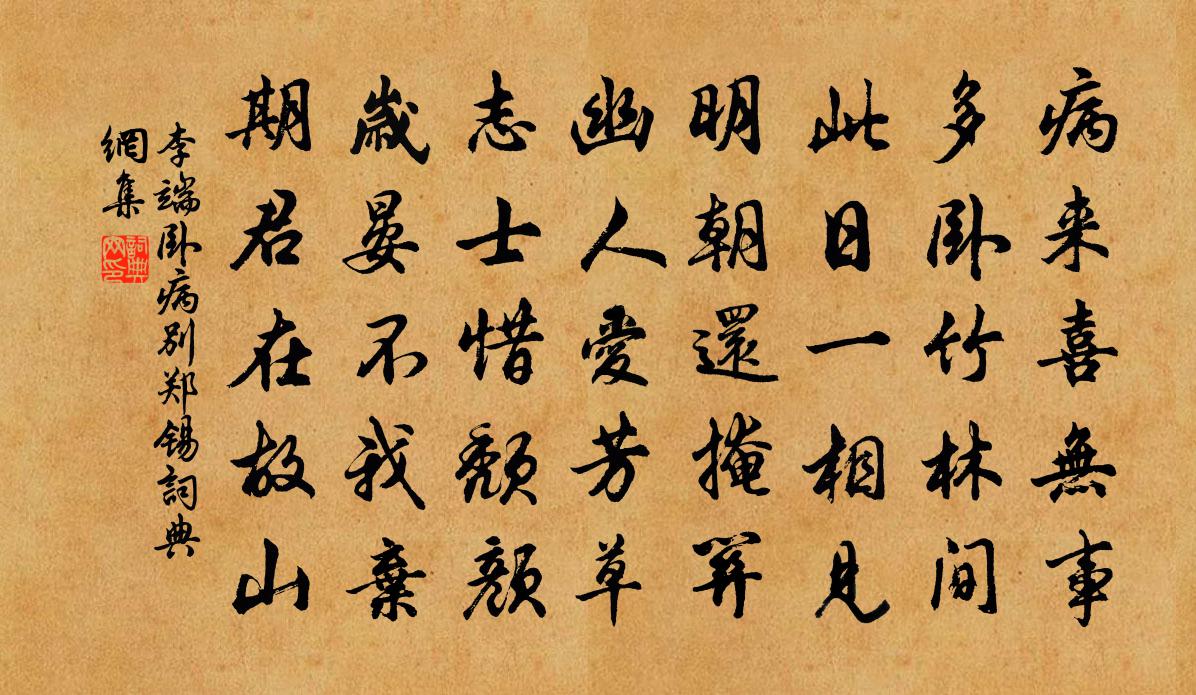 病来喜無事
多卧竹林間
此日一相見
明朝還掩關
幽人愛芳草
志士惜頹顔
歲晏不我棄
期君在故山
李端卧病别郑錫詞典
網集
詞典网印